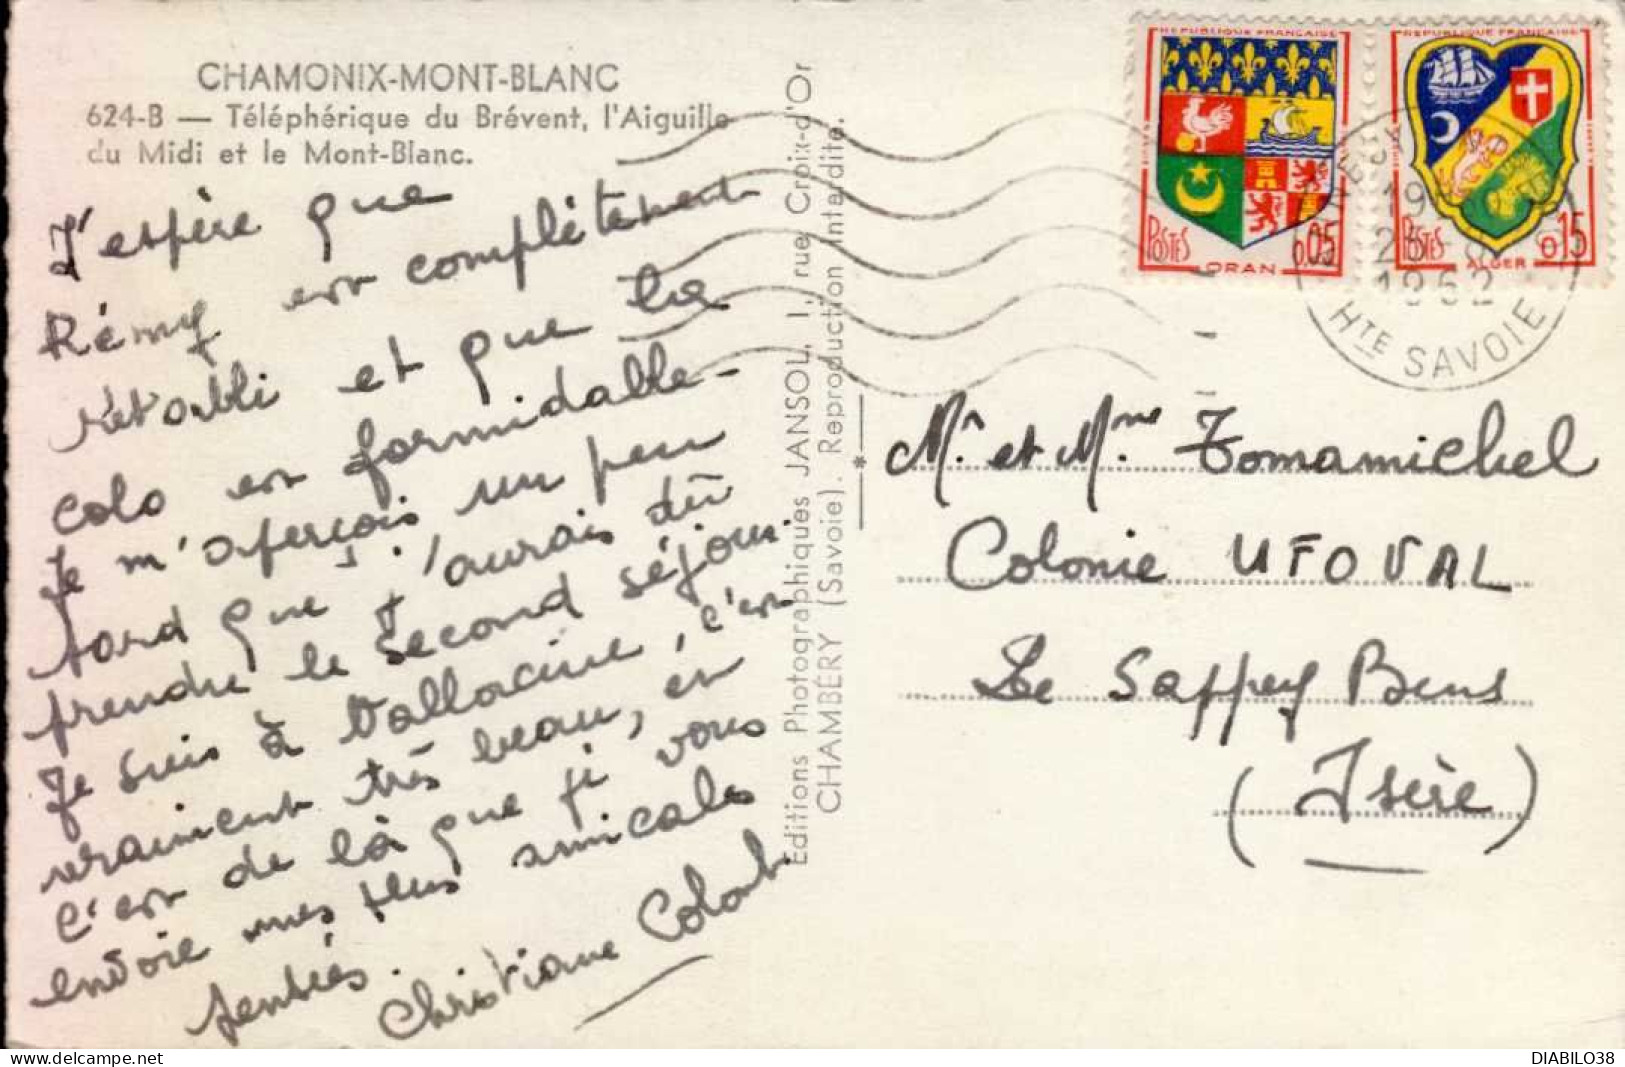 CHAMONIX-MONT-BLANC
624-B — Téléphérique du Brévent, l'Aiguille
du Midi et le Mont-Blanc.
J'espère que
Rémy est complètement
rétabli et que ta
colo est formidable -
Je m'aperçois un peu
tard que j'aurais dû
prendre le second séjour
Je suis à Vallorcine, c'est
vraiment très beau, et
c'est de là que je vous
envoie mes plus amicales
pensées.
Christiane Colomb
Editions Photographiques JANSOL, 1, rue Croix-d'Or
CHAMBÉRY (Savoie). Reproduction interdite.
REPUBLIQUE FRANÇAISE
POSTES
0,05
ORAN
REPUBLIQUE FRANÇAISE
POSTES
0,15
ALGER
1962
HTE SAVOIE
Mr. et Mme Tomamichel
Colonie UFOVAL
Le Sappey Bens
(Isère)
DIABILO38